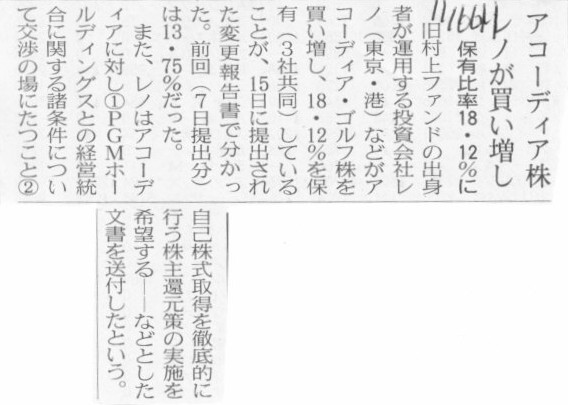 アコーディア株
レノが買い増し
保有比率18・12%に
旧村上ファンドの出身
者が運用する投資会社レ
ノ（東京・港）などがア
コーディア・ゴルフ株を
買い増し、18・12%を保
有（3社共同）している
ことが、15日に提出され
た変更報告書で分かっ
た。前回（7日提出分）
は13・75%だった。
また、レノはアコーデ
ィアに対し①PGMホー
ルディングスとの経営統
合に関する諸条件につい
て交渉の場にたつこと②
自己株式取得を徹底的に
行う株主還元策の実施を
希望する――などとした
文書を送付したという。